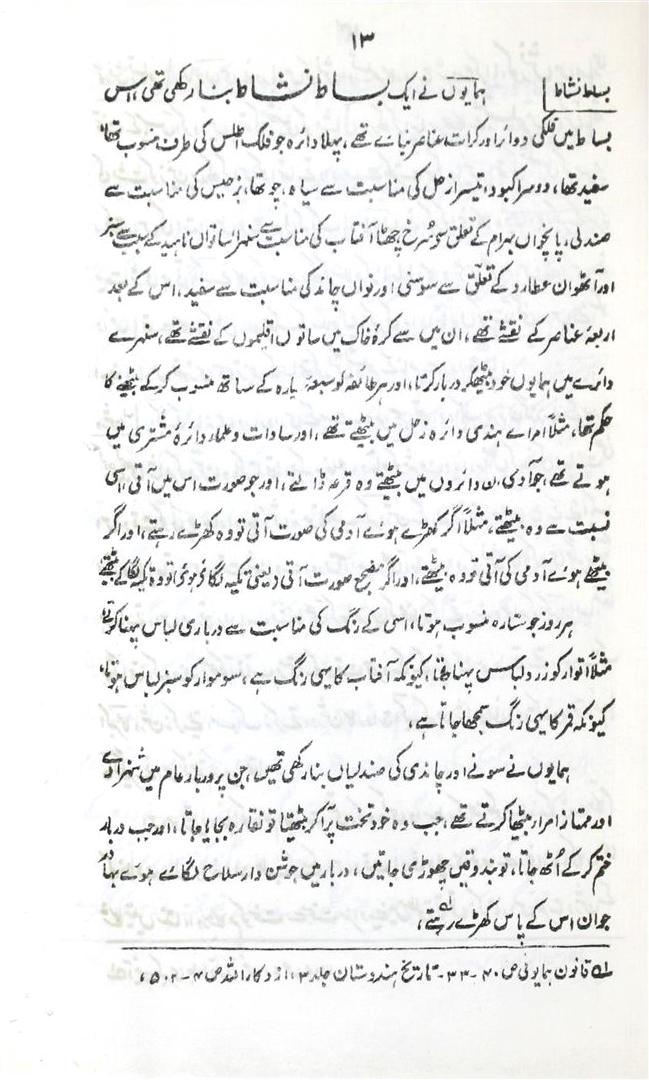 ۱۳
بساط نشاط
ہمایوں نے ایک بساط نشاط بنا رکھی تھی، اس
بساط میں فلکی دوائر اور کرات عناصر بنائے تھے، پہلا دائرہ جو فلک اطلس کی طرف منسوب تھا،
سفید تھا، دوسرا کبود، تیسرا زحل کی مناسبت سے سیاہ، چوتھا، برجیس کی مناسبت سے
صندلی، پانچواں بہرام کے تعلق سے سُرخ چھٹا آفتاب کی مناسبت سے سنہرا ساتواں ناہید کے سبب سے سبز
اور آٹھوان عطارد کے تعلّق سے سوسنی اور نواں چاند کی مناسبت سے سفید، اس کے بعد
اربعۂ عناصر کے نقشے تھے، ان میں سے کرۂ خاک میں ساتوں اقلیموں کے نقشے تھے، سنہرے
دائرے میں ہمایوں خود بیٹھکر دربار کرتا، اور ہر طائفہ کو سبعہ سیارہ کے ساتھ منسوب کر کے بیٹھنے کا
حکم تھا، مثلاً امراے ہندی دائرہ زحل میں بیٹھتے تھے، اور سادات و علماء دائرۂ مشتری میں
ہوتے تھے، جو آدمی ان دائروں میں بیٹھتے وہ قرعہ ڈالتے، اور جو صورت اس میں آتی، اسی
نسبت سے وہ بیٹھتے، مثلاً اگر کھڑے ہوے آدمی کی صورت آتی تو وہ کھڑے رہتے، اور اگر
بیٹھے ہوے آدمی کی آتی تو وہ بیٹھتے، اور اگر مضجع صورت آتی (یعنی تکیہ لگائے ہوئے) تو وہ تکیہ لگا کے بیٹھتے
ہر روز جو ستارہ منسوب ہوتا، اسی کے رنگ کی مناسبت سے درباری لباس پہنا کرتے
مثلاً اتوار کو زرد لباس پہنا جاتا، کیونکہ آفتاب کا یہی رنگ ہے، سوموار کو سبز لباس ہوتا،
کیونکہ قمر کا یہی رنگ سمجھا جاتا ہے،
ہمایوں نے سونے اور چاندی کی صندلیاں بنا رکھی تھیں، جن پر دربار عام میں شہزادے
اور ممتاز امراء بیٹھا کرتے تھے، جب وہ خود تخت پر آکر بیٹھتا تو نقارہ بجایا جاتا، اور جب دربار
ختم کر کے اُٹھ جاتا، تو بندوقیں چھوڑی جاتیں، دربار میں جوشن دار سلاح لگائے ہوئے بہادر
جوان اس کے پاس کھڑے رہتے،
لہ قانون ہمایونی ص ۴۰-۳۳- تاریخ ہندوستان جلد ۳، از ذکاء اللہ ص ۴-۵۰۲،